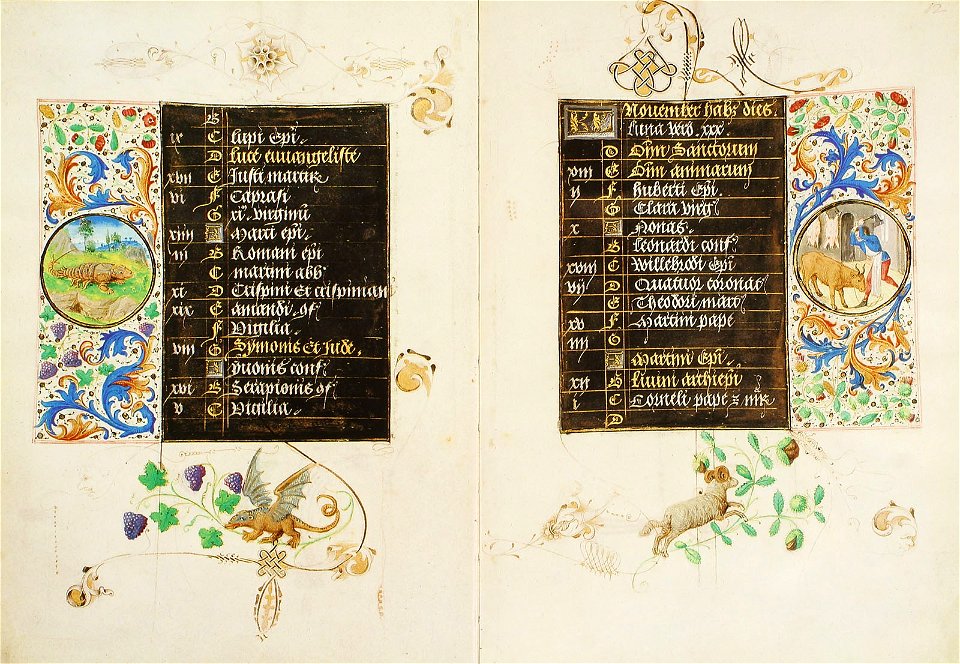 B
ix C Lupi Epi.
D Luce euuangeliste
xvii E Justi martiris
vi F Caprasi
G xi. virginum
xiiii A Marti epi.
iii B Romani epi
C martini abb
xi D Crispini Et crispiniani
xix E amandi. gf
F Vigilia.
viii G Symonis Et Jude.
A Yuonis conf
xvi B Serapionis gf
v C Vigilia.
12
KL November habz dies.
Luna vero. xxx.
D Oim Sanctorum
xiii E Oim animarum
ii F Huberti Epi
G Clara virg
x A Nonas
B Leonardi conf
xviii C Willebrodi Epi
vii D Quatuor coronat
E Theodori mart
xv F Martini pape
iiii G
A Martini Epi.
xii B Liuini archiepi
i C Corneli pape z mr
D